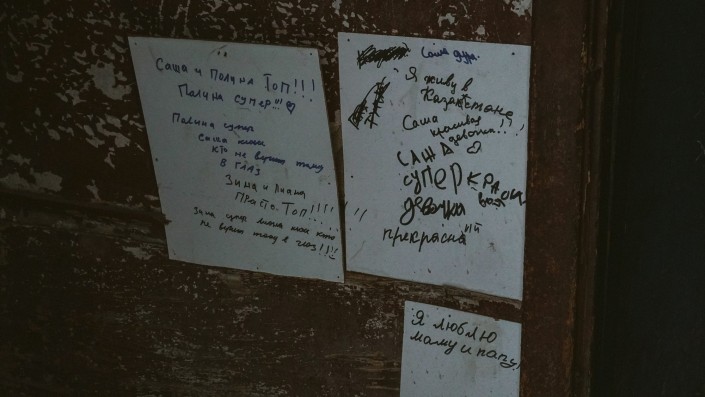 Саша и Полина Топ!!!
Полина супер!!! ♡
Полина супер
Саша
кто не верит тому
В ГЛАЗ
Зина и Лиана
ПРОСТО ТОП!!!!!
Зина супер Лиана кто
не верит тому в глаз!!!!
Саша дура.
Я живу в
Казахстане!
Саша
красивая
девочка..!!
САША ♡
супер красивая
девочка
прекрасна!!!
Я люблю
маму и папу!